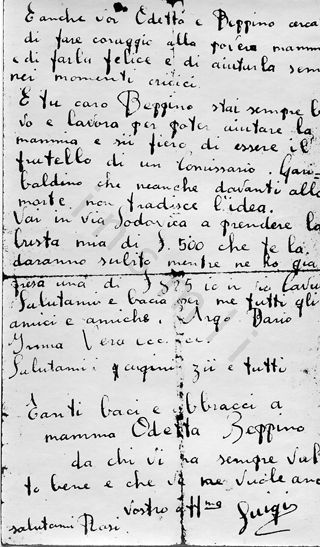 E anche voi Odetta e Beppino cerca
di fare coraggio alla povera mamma
e di farla felice e di aiutarla sem
nei momenti critici.
E tu caro Beppino stai sempre b
vo e lavora per poter aiutare la
mamma e sii fiero di essere il
fratello di un Comissario Gari
baldino che neanche davanti alla
morte non tradisce l'idea.
Vai in via Lodovica a prendere la
busta mia di £. 500 che te la
daranno subito mentre ne ho già
presa una di £ 825
Salutami e bacia per me tutti gli
amici e amiche. Argo Dario
Irma Vera ecc. ecc.
Salutami i cugini zii e tutti
Tanti baci e abbracci a
mamma Odetta Beppino
da chi vi ha sempre vol
to bene e che
vostro aff.mo Luigi
salutami Rasi.